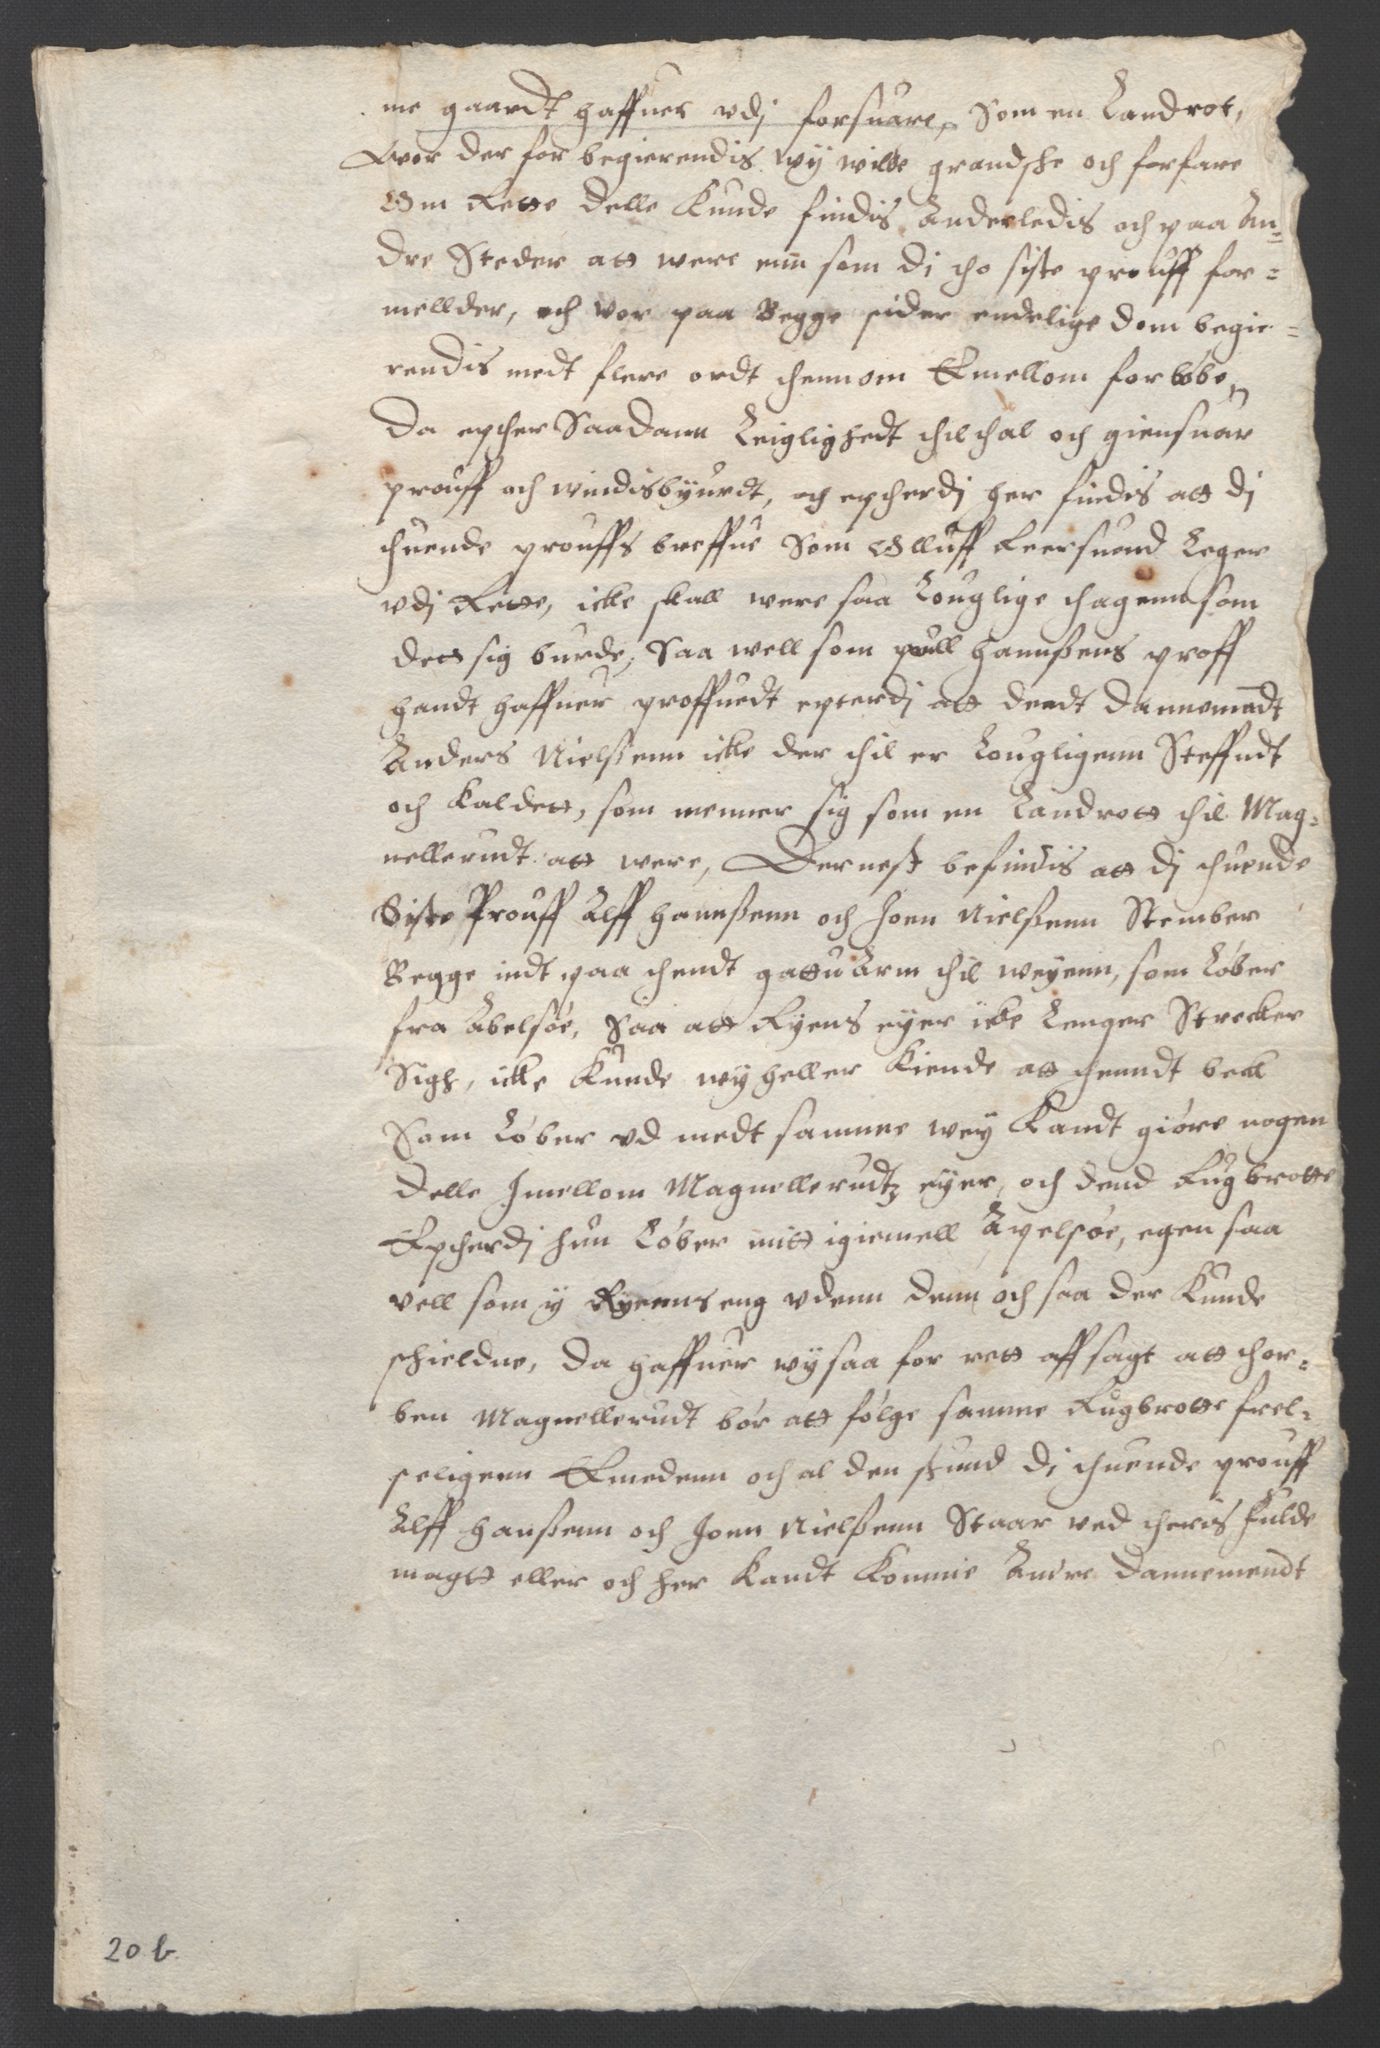 me gaardt haffuer vdj forsuare, Som en Landrot,
Wor der for begierendis wij wilde grandske och forfare
Om Rette delle kunde findis Anderledis och paa An-
dre Steder att were enn som di tho siste prouff for-
mellder, och wor paa Begge sider endelige dom begie-
rendis medt flere ordt thennom Emellom forløbe,
Da epther Saadann Leiglighedt thilthal och giensuar
prouff och windisbyurdt, och eptherdj her findis att di
thuende prouffs breffue Som Olluff Leersuend Leger
vdj Rette, icke skall were saa Louglige thagenn som
dett sig burde, Saa well som poull Hannsens proff
handt haffuer proffuedt epterdj att dendt dannemandt
Anders Nielsenn icke der thil er Lougligenn Steffndt
och kaldett, som menner sig som en Landrott thil Mag-
nellerudt att were, Dernest befindis att di thuende
Siste Prouff Alff Hannsenn och Joen Nielsenn Stember
Begge indt paa thendt gattu Arm thil weyenn, som Løber
fra Abelsøe, Saa att Ryens eyer icke Lenger Strecker
Sigh, icke kunde wy heller kiende att thenndt beck
Som Løber vd medt samme wey kandt giøre nogen
delle Imellom Magnellerudtz eyer, och dend Rugbrotte
Eptherdj hun Løber mitt igiemell Apelsøe, egen saa
vell som y Ryenns eng vdenn denn och saa der kunde
skieldne, da haffuer wy saa for rett affsagt att thor-
ben Magnellerudt bør att følge samme Rugbrotte frel-
seligenn Emedenn och al den stund di thuende prouff
Alff Hansenn och Joen Nielsenn Staar ved theris fulde
magtt eller och her kandt komme Andre dannemendt
20 b